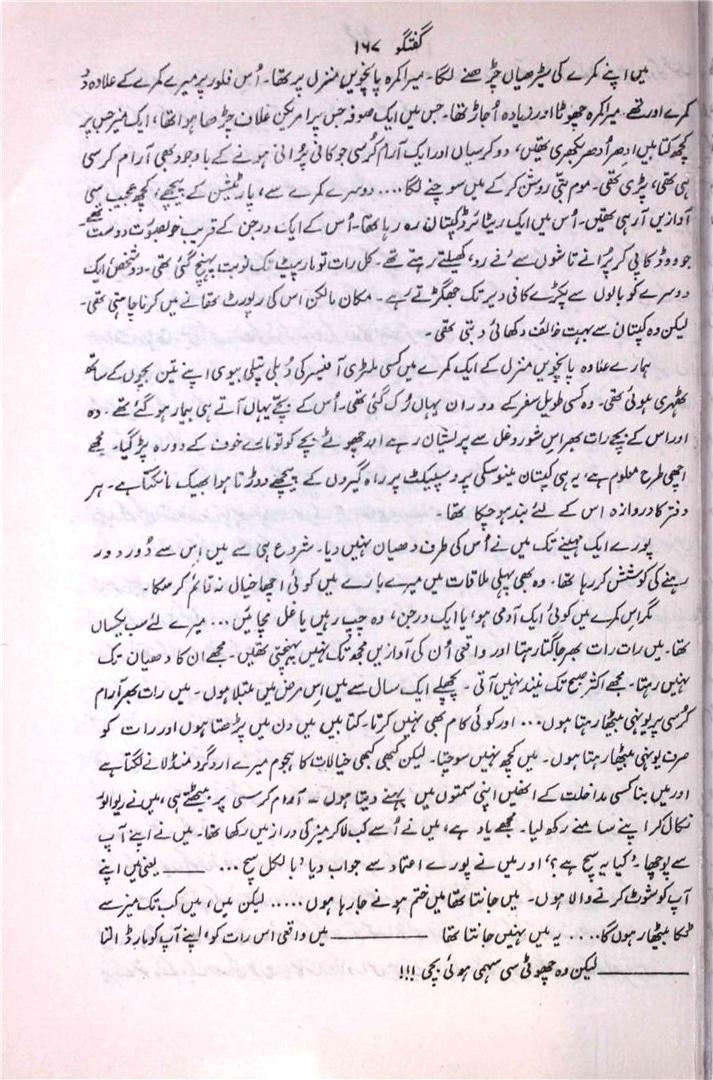 گفتگو ۱۶۷
میں اپنے کمرے کی سیڑھیاں چڑھنے لگا۔ میرا کمرہ پانچویں منزل پر تھا۔ اُس فلور پر میرے کمرے کے علاوہ دُو
کمرے اور تھے۔ میرا کمرہ چھوٹا اور زیادہ اُجاڑ تھا۔ جس میں ایک صوفہ جس پر امریکن غلاف چڑھا ہوا تھا، ایک میز جس پر
کچھ کتابیں اِدھر اُدھر بکھری تھیں، دو کرسیاں اور ایک آرام کُرسی جو کافی پُرانی ہونے کے باوجود بھی آرام کرسی
ہی تھی، پڑی تھی۔ موم بتی روشن کر کے میں سوچنے لگا.... دوسرے کمرے سے، پارٹیشن کے پیچھے، کچھ عجیب سی
آوازیں آ رہی تھیں۔ اُس میں ایک ریٹائرڈ کپتان رہ رہا تھا۔ اُس کے ایک درجن کے قریب خوبصورت دوست تھے
جو ووڈکا پی کر پُرانے تاشوں سے نُے رو، کھیلتے رہتے تھے۔ کل رات تو مار پیٹ تک نوبت پہنچ گئی تھی۔ دو شخص ایک
دوسرے کو بالوں سے پکڑے کافی دیر تک جھگڑتے رہے۔ مکان مالکن اس کی رپورٹ تھانے میں کرنا چاہتی تھی۔
لیکن وہ کپتان سے بہت خائف دکھائی دیتی تھی۔
ہمارے علاوہ پانچویں منزل کے ایک کمرے میں کسی ملٹری آفیسر کی دُبلی پتلی بیوی اپنے تین بچوں کے ساتھ
ٹھہری ہوئی تھی۔ وہ کسی طویل سفر کے دوران یہاں رُک گئی تھی۔ اُس کے بچے یہاں آتے ہی بیمار ہو گئے تھے۔ وہ
اور اس کے بچے رات بھر اس شور و غل سے پریشان رہے اور چھوٹے بچے کو تو مارے خوف کے دورہ پڑ گیا۔ مجھے
اچھی طرح معلوم ہے، یہ ہی کپتان نیوسکی پروسپیکٹ پر راہ گیروں کے پیچھے دوڑتا ہوا بھیک مانگتا ہے۔ ہر
دفتر کا دروازہ اس کے لئے بند ہو چکا تھا۔
پورے ایک مہینے تک میں نے اُس کی طرف دھیان نہیں دیا۔ شروع ہی سے میں اِس سے دُور دور
رہنے کی کوشش کر رہا تھا۔ وہ بھی پہلی ملاقات میں میرے بارے میں کوئی اچھا خیال نہ قائم کر سکا۔
مگر اس کمرے میں کوئی ایک آدمی ہو یا ایک درجن، وہ چپ رہیں یا غل مچائیں... میرے لئے سب یکساں
تھا۔ میں رات رات بھر جاگتا رہتا اور واقعی اُن کی آوازیں مجھ تک نہیں پہنچتی تھیں۔ مجھے ان کا دھیان تک
نہیں رہتا۔ مجھے اکثر صبح تک نیند نہیں آتی۔ پچھلے ایک سال سے میں اِس مرض میں مبتلا ہوں۔ میں رات بھر آرام
کُرسی پر یونہی بیٹھا رہتا ہوں... اور کوئی کام بھی نہیں کرتا۔ کتابیں میں دن میں پڑھتا ہوں اور رات کو
صرف یونہی بیٹھا رہتا ہوں۔ میں کچھ نہیں سوچتا۔ لیکن کبھی کبھی خیالات کا ہجوم میرے اردگرد منڈلانے لگتا ہے
اور میں بنا کسی مداخلت کے انھیں اپنی سمتوں میں بہنے دیتا ہوں ـــ آرام کرسی پر بیٹھتے ہی، میں نے ریوالور
نکال کر اپنے سامنے رکھ لیا۔ مجھے یاد ہے، میں نے اُسے کب لا کر میز کی دراز میں رکھا تھا۔ میں نے اپنے آپ
سے پوچھا۔ 'کیا یہ سچ ہے؟' اور میں نے پورے اعتماد سے جواب دیا 'بالکل سچ... ـــــــ یعنی میں اپنے
آپ کو شوٹ کرنے والا ہوں۔ میں جانتا تھا میں ختم ہونے جا رہا ہوں..... لیکن میں، میں کب تک میز سے
ٹکا بیٹھا رہوں گا.... یہ میں نہیں جانتا تھا ـــــــــــــ میں واقعی اس رات کو، اپنے آپ کو مار ڈالتا
ـــــــــــــ لیکن وہ چھوٹی سی سہمی ہوئی بچی!!!